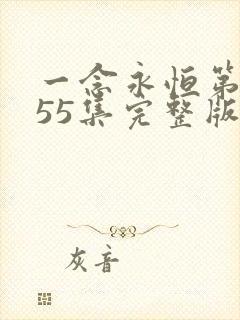 一念永恒第
55集完整版
灰音